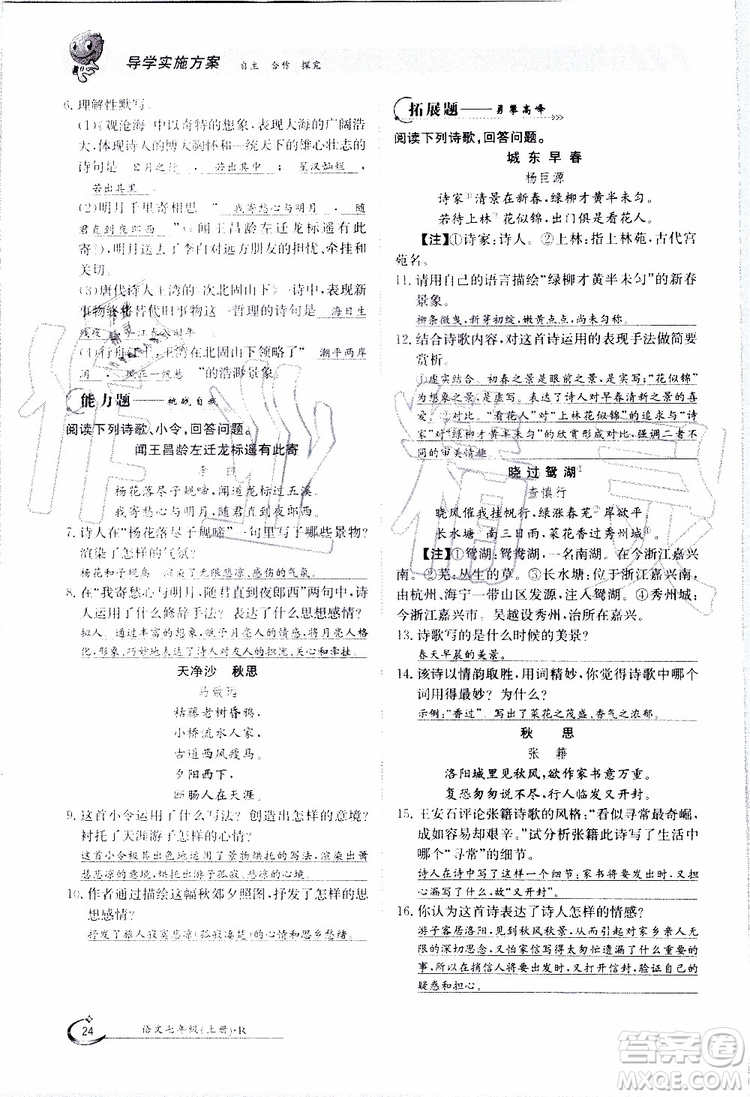 导学实施方案 自主 合作 探究
6. 理解性默写。
(1)《观沧海》中以奇特的想象，表现大海的广阔浩
大，体现诗人博大胸怀和统一天下的雄心壮志的
诗句是 日月之行 ， 若出其中 ； 星汉灿烂 ，
若出其里 。
(2)明月千里寄相思，“ 我寄愁心与明月 ， 随
君直到夜郎西 ”(《闻王昌龄左迁龙标遥有此
寄》)，明月送去了李白对远方朋友的担忧、牵挂和
关切。
(3)唐代诗人王湾的《次北固山下》诗中，表现新
事物终将替代旧事物这一哲理的诗句是 海日生
残夜 ， 江春入旧年 。
(4)行舟江中，王湾在北固山下领略了“ 潮平两岸
阔 ”的浩渺景象。
能力题——挑战自我
阅读下列诗歌、小令，回答问题。
闻王昌龄左迁龙标遥有此寄
李 白
杨花落尽子规啼，闻道龙标过五溪。
我寄愁心与明月，随君直到夜郎西。
7. 诗人在“杨花落尽子规啼”一句里写了哪些景物？
渲染了怎样的气氛？
杨花和子规。渲染了飘零、感伤的气氛。
8. 在“我寄愁心与明月，随君直到夜郎西”两句中，诗
人运用了什么修辞手法？表达了什么思想感情？
拟人。丰富想象，赋予月亮以情感，将月亮人格
化，形象、巧妙地表达了对友人的关心和牵挂。
天净沙 秋思
马致远
枯藤老树昏鸦，
小桥流水人家，
古道西风瘦马。
夕阳西下，
断肠人在天涯。
9. 这首小令运用了什么写法？创造出怎样的意境？
衬托了天涯游子怎样的心情？
这首小令极其出色地运用了景物烘托的写法，渲染出萧
瑟悲凉的意境，衬托了天涯游子的孤寂、悲凉的心情。
10. 作者通过描绘这幅秋郊夕照图，抒发了怎样的思
想感情？
抒发了旅人寂寞悲凉(孤寂凄苦)和思乡愁绪。
拓展题——勇攀高峰
阅读下列诗歌，回答问题。
城 东 早 春
杨巨源
诗家①清景在新春，绿柳才黄半未匀。
若待上林②花似锦，出门俱是看花人。
【注】①诗家：诗人。②上林：指上林苑，古代宫
苑名。
11. 请用自己的语言描绘“绿柳才黄半未匀”的新春
景象。
柳条微曳，新芽初绽，嫩黄点点，尚未匀称。
12. 结合诗歌内容，对这首诗运用的表现手法做简要
赏析。
①虚实结合。初春之景是眼前之景，为实写；“花似锦”
是想象之景，是虚写。表达了诗人对早春清新之景的喜
爱。②对比。“看花人”对“上林花似锦”的追求与“诗
家”对“绿柳才黄半未匀”的欣赏形成对比，强调二者不同
的审美情趣。
晓 过 鸳 湖①
查慎行
晓风催我挂帆行，绿涨春芜②岸欲平。
长水塘③南三日雨，菜花香过秀州城④。
【注】①鸳湖：鸳鸯湖，一名南湖。在今浙江嘉兴
市南。②芜：丛生的草。③长水塘：在嘉兴南，由
由杭州、海宁一带山区发源，注入鸳湖。④秀州城：
今浙江嘉兴市。吴越设秀州，治所在嘉兴。
13. 诗歌写的是什么时候的美景？
春天早晨的美景。
14. 该诗以情韵取胜，用词精妙，你觉得诗歌中哪个
词用得最妙？为什么？
示例：“香过”，写出了菜花之茂盛，香气之浓郁。
秋 思
张 籍
洛阳城里见秋风，欲作家书意万重。
复恐匆匆说不尽，行人临发又开封。
15. 王安石评论张籍诗歌的风格：“看似寻常最奇崛，
成如容易却艰辛。”试分析张籍此诗写了生活中
哪个“寻常”的细节。
诗人在诗中截取了生活中普通的一个细节：诗人因担
心漏写了什么，故又一次开封添写。
16. 你认为这首诗表达了诗人怎样的情感？
游子客居洛阳，见秋风秋景，引起对家乡亲人无
限的思念，又怕家信写得太匆忙遗漏了什么重要
的内容，所以在捎信人将要出发时，又打开信封，验证自己的
疑惑和担心。
24 语文七年级(上册)·R
答案圈
MXQE.COM